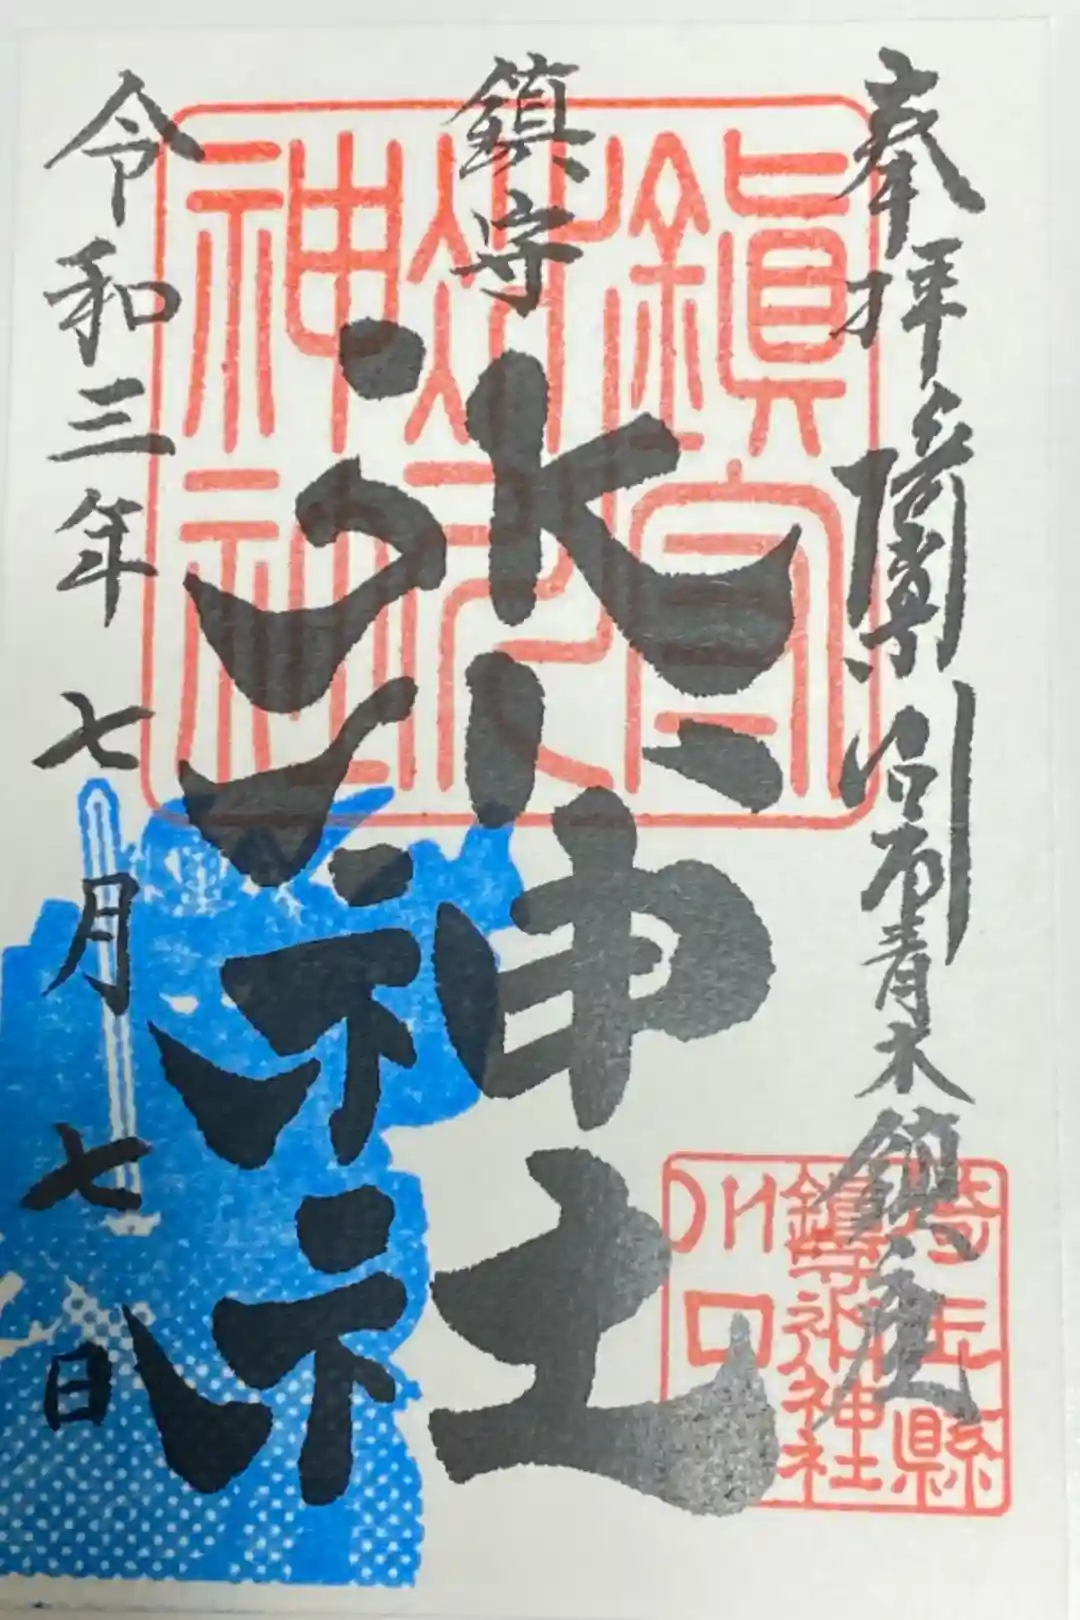 奉拝 武蔵國 川口市青木鎮座
鎮守
氷川神社
令和三年七月七日
鎮守
氷川
神社
埼玉縣
鎮守氷川神社
川口